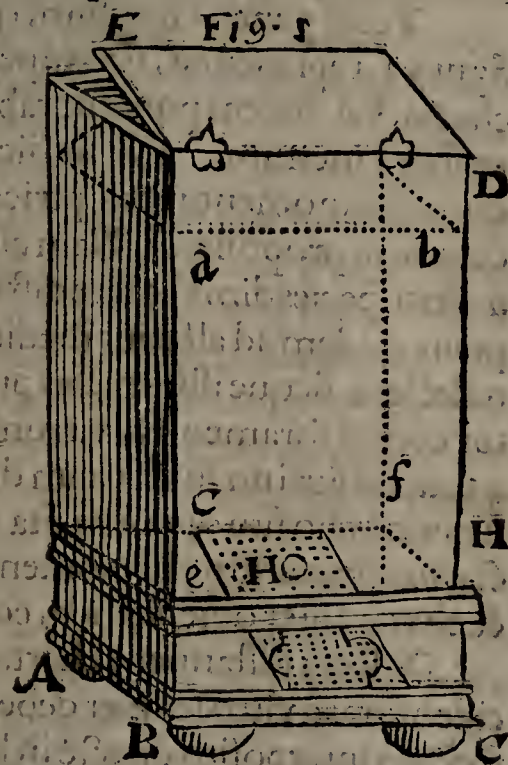 E Fig. 5
D
a b
f
C H
e HO
A
B C